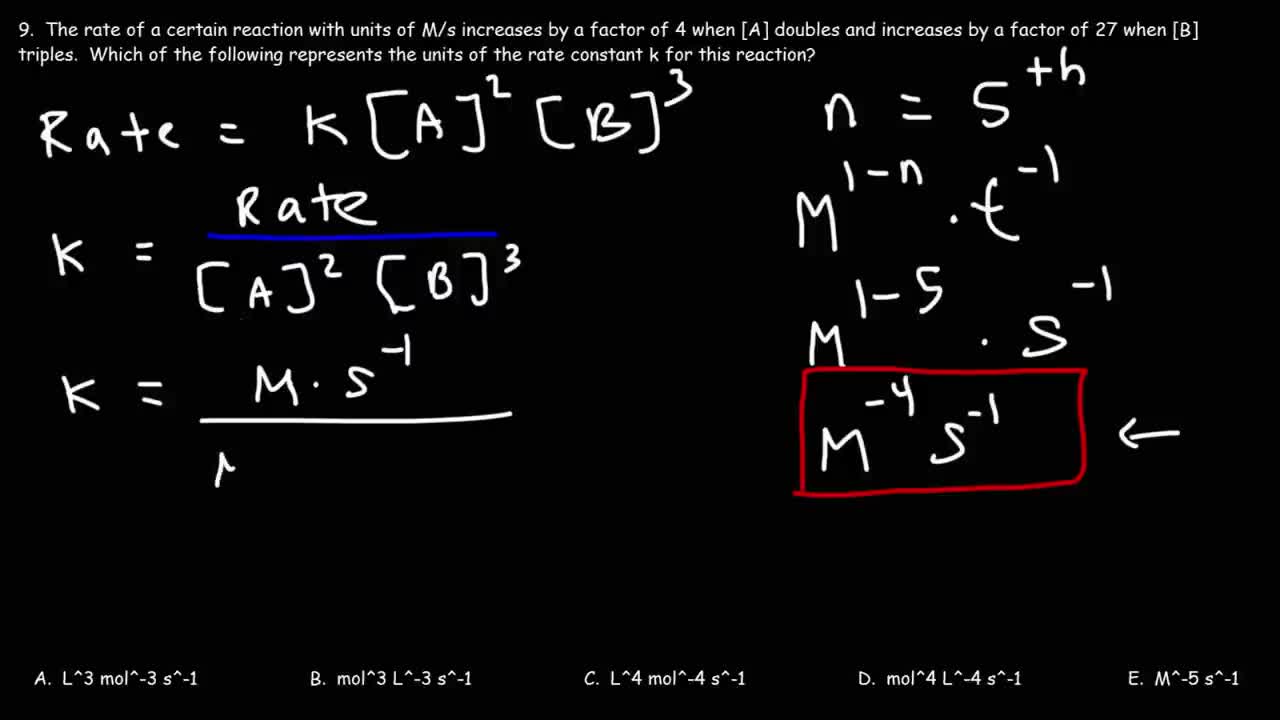 9. The rate of a certain reaction with units of M/s increases by a factor of 4 when [A] doubles and increases by a factor of 27 when [B]
triples. Which of the following represents the units of the rate constant k for this reaction?
Rate = K [A]^2 [B]^3
K = Rate / [A]^2 [B]^3
K = M · s^-1
M
n = 5^th
M^1-n · t^-1
M^1-5 · s^-1
M^-4 s^-1 ←
A. L^3 mol^-3 s^-1
B. mol^3 L^-3 s^-1
C. L^4 mol^-4 s^-1
D. mol^4 L^-4 s^-1
E. M^-5 s^-1